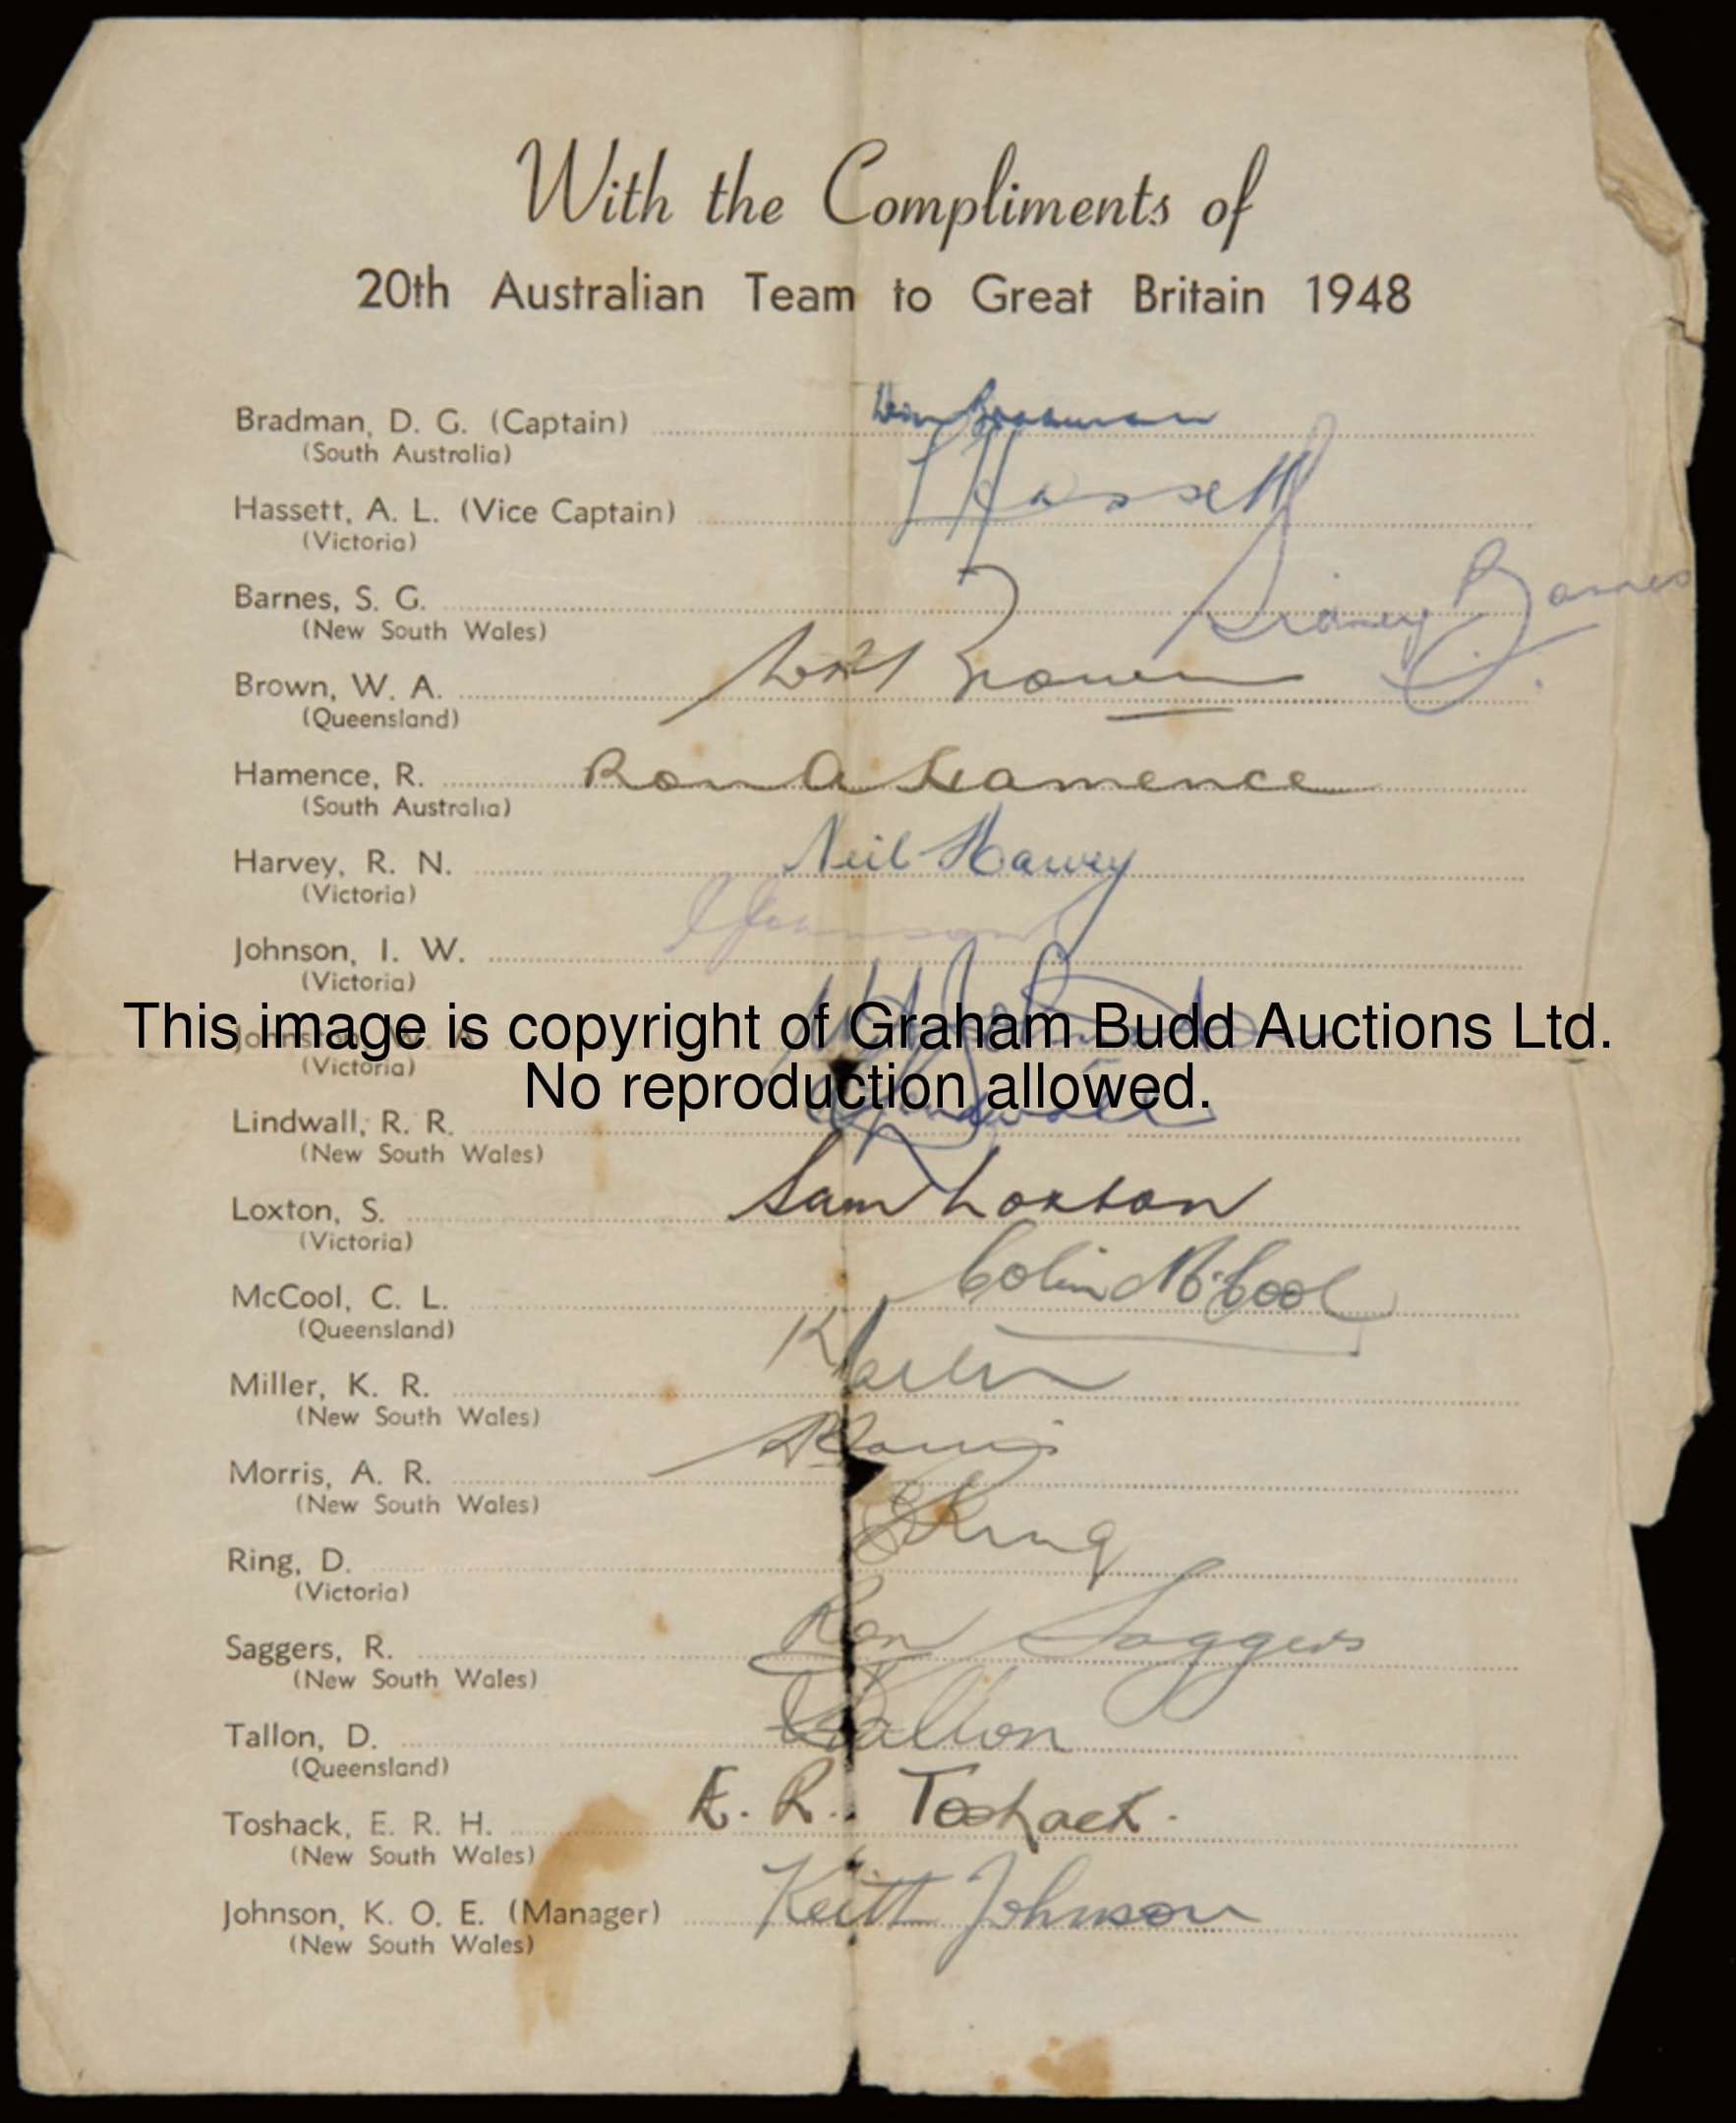 With the Compliments of
20th Australian Team to Great Britain 1948
Bradman, D. G. (Captain) Don Bradman
(South Australia)
Hassett, A. L. (Vice Captain) Hassett
(Victoria)
Barnes, S. G. Sidney Barnes
(New South Wales)
Brown, W. A. Bill Brown
(Queensland)
Hamence, R. Ron A Hamence
(South Australia)
Harvey, R. N. Neil Harvey
(Victoria)
Johnson, I. W. I Johnson
(Victoria)
This image is copyright of Graham Budd Auctions Ltd.
Johnston, W. A.
(Victoria)
No reproduction allowed.
Lindwall, R. R. Lindwall
(New South Wales)
Loxton, S. Sam Loxton
(Victoria)
McCool, C. L. Colin McCool
(Queensland)
Miller, K. R. K Miller
(New South Wales)
Morris, A. R. A Morris
(New South Wales)
Ring, D. D Ring
(Victoria)
Saggers, R. Ron Saggers
(New South Wales)
Tallon, D. D Tallon
(Queensland)
Toshack, E. R. H. E. R. Toshack.
(New South Wales)
Johnson, K. O. E. (Manager) Keith Johnson
(New South Wales)